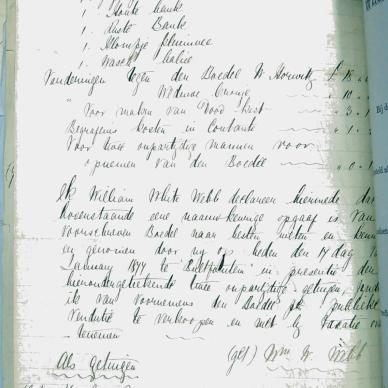 1. Houte bank
1. Ruste Bank
1. Klompje pluimee
1. Wasch balie
Vorderingen tegen den Boedel W Horwitz £ 18
" Weduwe 10
" Voor maken van Dood kest 3
Begrafenis kosten in Contante 1
Voor twee onpartydige mannen voor
opnemen van den Boedel 0 1
Ik William White Webb declareer hiermede dat
bovenstaande eene naauwkeurige opgaaf is van
voorschreven Boedel naar besten weten en
en genomen door my op heden den 17 dag
January 1877 te in presentie der
hierondergetekende twee onpartydige getuigen
ik van voornemens den Boedel publieke
Venditie te verkoopen en niet by Taxatie over
te nemen
(get) Wm W. Webb
Als getuigen